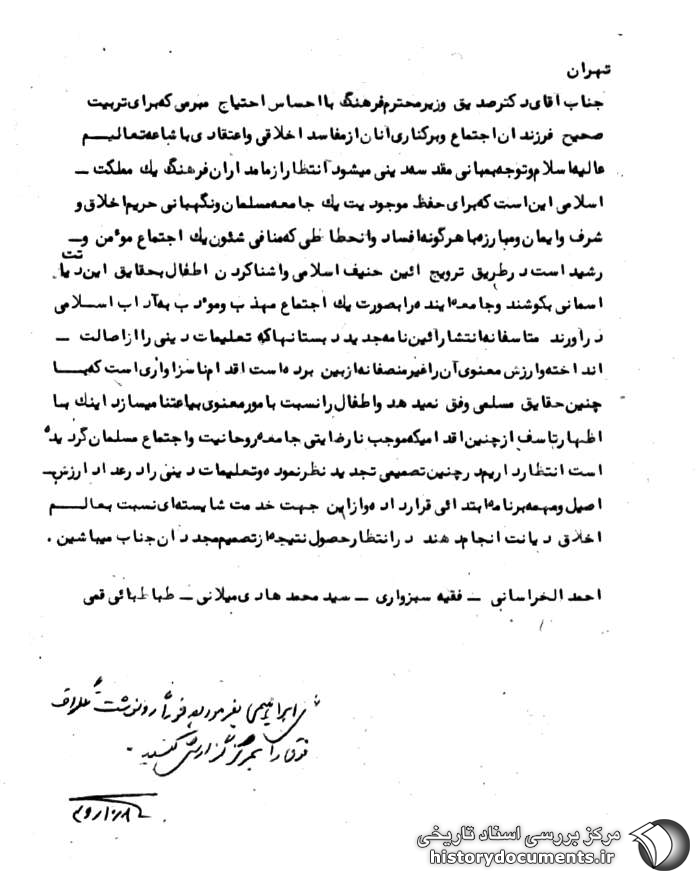 تهران
جناب آقای دکتر صدیق وزیر محترم فرهنگ با احساس احتیاج مبرمی که برای تربیت
صحیح فرزندان اجتماع و برکناری آنان از مفاسد اخلاقی و اعتقادی با شاعه تعالیم
عالیه اسلام و توجه بمبانی مقدسه دینی میشود انتظار از زمامداران فرهنگ یک مملکت ـ
اسلامی این است که برای حفظ موجودیت یک جامعه مسلمان و نگهبانی حریم اخلاق و
شرف و ایمان و مبارزه با هرگونه افساد و انحطاطی که منافی شئون یک اجتماع موٴمن و ـ
رشید است در طریق ترویج آئین حنیف اسلامی و آشنا کردن اطفال بحقایق این دیانت
آسمانی بکوشند و جامعه آینده را بصورت یک اجتماع مهذب و موٴدب به آداب اسلامی
درآورند متاسفانه انتشار آئین نامه جدید دبستانها که تعلیمات دینی را از اصالت ـ
انداخته و ارزش معنوی آن را غیر منصفانه از بین برده است اقدام ناسزاواری است که با
چنین حقایق مسلمی وفق نمیدهد و اطفال را نسبت با مور معنوی بی اعتنا میسازد اینک با
اظهار تاسف از چنین اقدامیکه موجب نارضایتی جامعه روحانیت و اجتماع مسلمان گردیده
است انتظار داریم در چنین تصمیمی تجدید نظر نموده و تعلیمات دینی را در عداد ارزش ـ
اصیل و مهمه برنامه ابتدائی قرار داده و از این جهت خدمت شایسته ای نسبت بعالم
اخلاق دیانت انجام دهند در انتظار حصول نتیجه از تصمیم مجدد آن جناب میباشین .
احمد الخراسانی ـ فقیه سبزواری ـ سید محمد هادی میلانی ـ طباطبائی قمی
ابراهیمی بفرمورید فوراً رونوشت تلگراف
فوق را بمرکز گزارش کنید .
مرکز بررسی اسناد تاریخی
historydocuments.ir